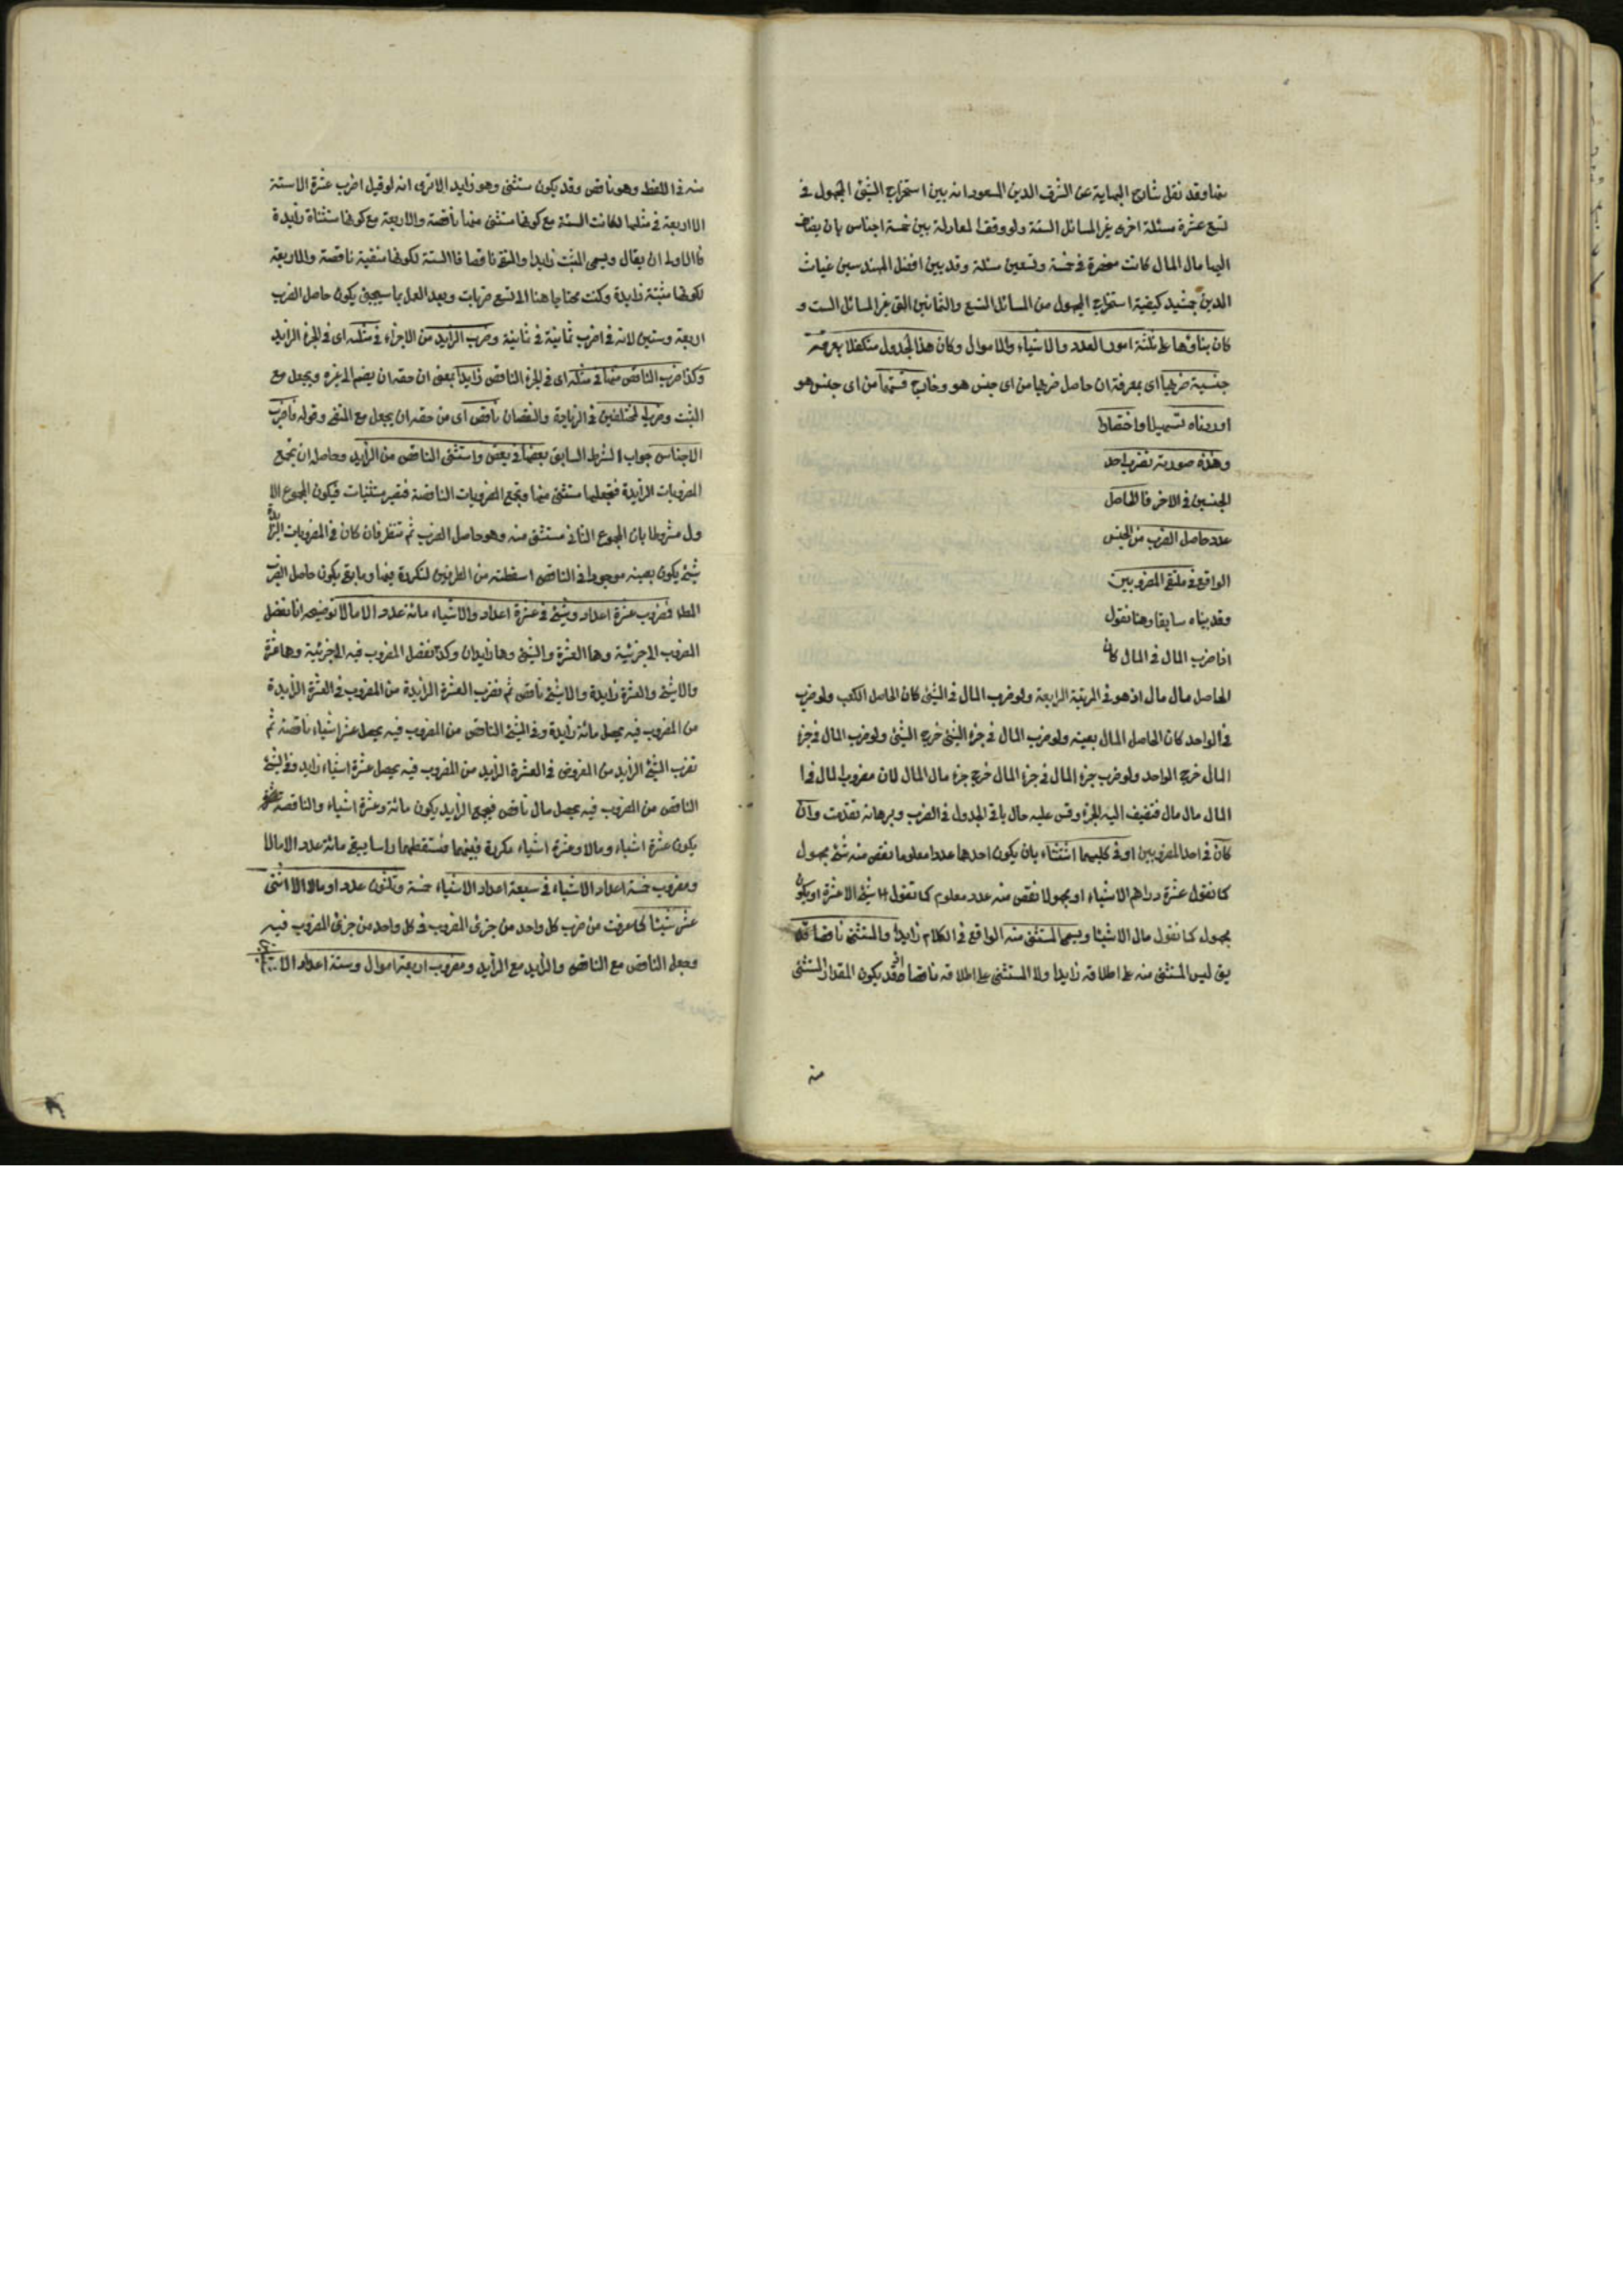 بينها وقد نقل شارح البهاية عن الشرف الدين المسعود انه بين استخراج الشئ المجهول في
تسع عشرة مسئلة اخرى غير المسائل الستة ولو وقفوا لمعادلة بين خمسة اجناس بان يضاف
اليها مال المال كانت منحصرة في خمسة وتسعين مسئلة وقد بين افضل المهندسين غياث
الدين جمشيد كيفية استخراج المجهول من المسائل التسع والثمانين التي غير المسائل الست و
كان بناؤها على ثلثة امور العدد والاشياء والاموال وكان هذا الجدول متكفلا بمعرفة
جنسية ضربها اى بمعرفة ان حاصل ضربها من اى جنس هو وخارج قسمتها من اى جنس هو
اوردناه تسهيلا واختصارا
وهذه صورته نضرب احد
الجنسين في الاخر فالحاصل
عدد حاصل الضرب من الجنس
الواقع في ملتقى المضروبين
وقد بيناه سابقا وهنا نقول
اذا ضرب المال في المال كان
الحاصل مال مال اذ هو في المرتبة الرابعة ولو ضرب المال في الشئ كان الحاصل الكعب ولو ضرب
في الواحد كان الحاصل المال بعينه ولو ضرب المال في جزء الشئ خرج الشئ ولو ضرب المال في جزء
المال خرج الواحد ولو ضرب جزء المال في جزء المال خرج جزء مال المال لان مضروب المال في ا
المال مال مال فنضيف اليه الجزء وقس عليه حال باقي الجدول في الضرب وبرهانه تقدمت وان
كان في احد المضروبين او في كليهما استثناء بان يكون احدهما عددا معلوما نقص منه شئ مجهول
كما نقول عشرة دراهم الا شياء او مجهولا نقص منه عدد معلوم كما نقول شئ الا عشرة او يكون
مجهول كما نقول مال الا شيئا ويسمى المستثنى منه الواقع في الكلام زايدا والمستثنى ناقصا قد
يق ليس المستثنى منه على اطلاقه زايدا ولا المستثنى على اطلاقه ناقصا اذ قد يكون المقدار المستثنى
منه
منه في اللفظ وهو ناقص وقد يكون مستثنى وهو زايد الا ترى انه لو قيل اضرب عشرة الا ستة
الا اربعة في مثلها لكانت الستة مع كونها مستثنى منها ناقصة والاربعة مع كونها مستثناة زايدة
فالاولى ان يقال ويسمى المثبت زايدا والمنفى ناقصا فالستة لكونها منفية ناقصة والاربعة
لكونها مثبتة زايدة وكنت محتاجا هنا الى تسع ضربات وبعد العمل بما سيجئ يكون حاصل الضرب
اربعة وستين لانه في اضرب ثمانية في ثمانية وضرب الزايد من الاجزاء في مثله اى في الجزء الزايد
وكذا ضرب الناقص منها في مثله اى في الجزء الناقص زايد يعنى ان حقه ان يضم الى غيره ويجعل مع
المثبت وضرب المختلفين في الزيادة والنقصان ناقص اى من حقه ان يجعل مع المنفى وقوله فاضرب
الاجناس جواب الشرط السابق بعضها في بعض واستثنى الناقص من الزايد وحاصله ان تجمع
المضروبات الزايدة فتجعلها مستثنى منها وتجمع المضروبات الناقصة فتصير مستثنيات فيكون المجموع الا
ول مشروطا بان المجموع الثاني مستثنى منه وهو حاصل الضرب ثم تنظر فان كان في المضروبات الزايدة
شئ يكون بعينه موجودا في الناقص اسقطته من الطرفين لتكرره فيها وما بقى يكون حاصل الضرب
المط فمضروب عشرة اعداد وشئ في عشرة اعداد والا شياء مائة عدد الا مالا توضيحه انا نفصل
المضروب الى جزئية وهما العشرة والشئ وهما زايدان وكذا نفصل المضروب فيه الى جزئية وهما عشرة
والا شئ والعشرة زايدة والا شئ ناقص ثم نضرب العشرة الزايدة من المضروب في العشرة الزايدة
من المضروب فيه يحصل مائة زايدة وفي الشئ الناقص من المضروب فيه يحصل عشر اشياء ناقصة ثم
نضرب الشئ الزايد من المضروب في العشرة الزايد من المضروب فيه يحصل عشرة اشياء زايد وفي الشئ
الناقص من المضروب فيه يحصل مال ناقص فيجمع الزايد يكون مائة وعشرة اشياء والناقصة
يكون عشرة اشياء ومالا وعشرة اشياء مكررة فيهما فنسقطهما راسا يبقى مائة عدد الا مالا
ومضروب خمسة اعداد الا شياء في سبعة اعداد الا شياء خمسة وثلثون عدد او مالا الا اثنى
عشر شيئا لما عرفت من ضرب كل واحد من جزئي المضروب في كل واحد من جزئي المضروب فيه
وجعل الناقص مع الناقص والزايد مع الزايد ومضروب اربعة اموال وستة اعداد الا